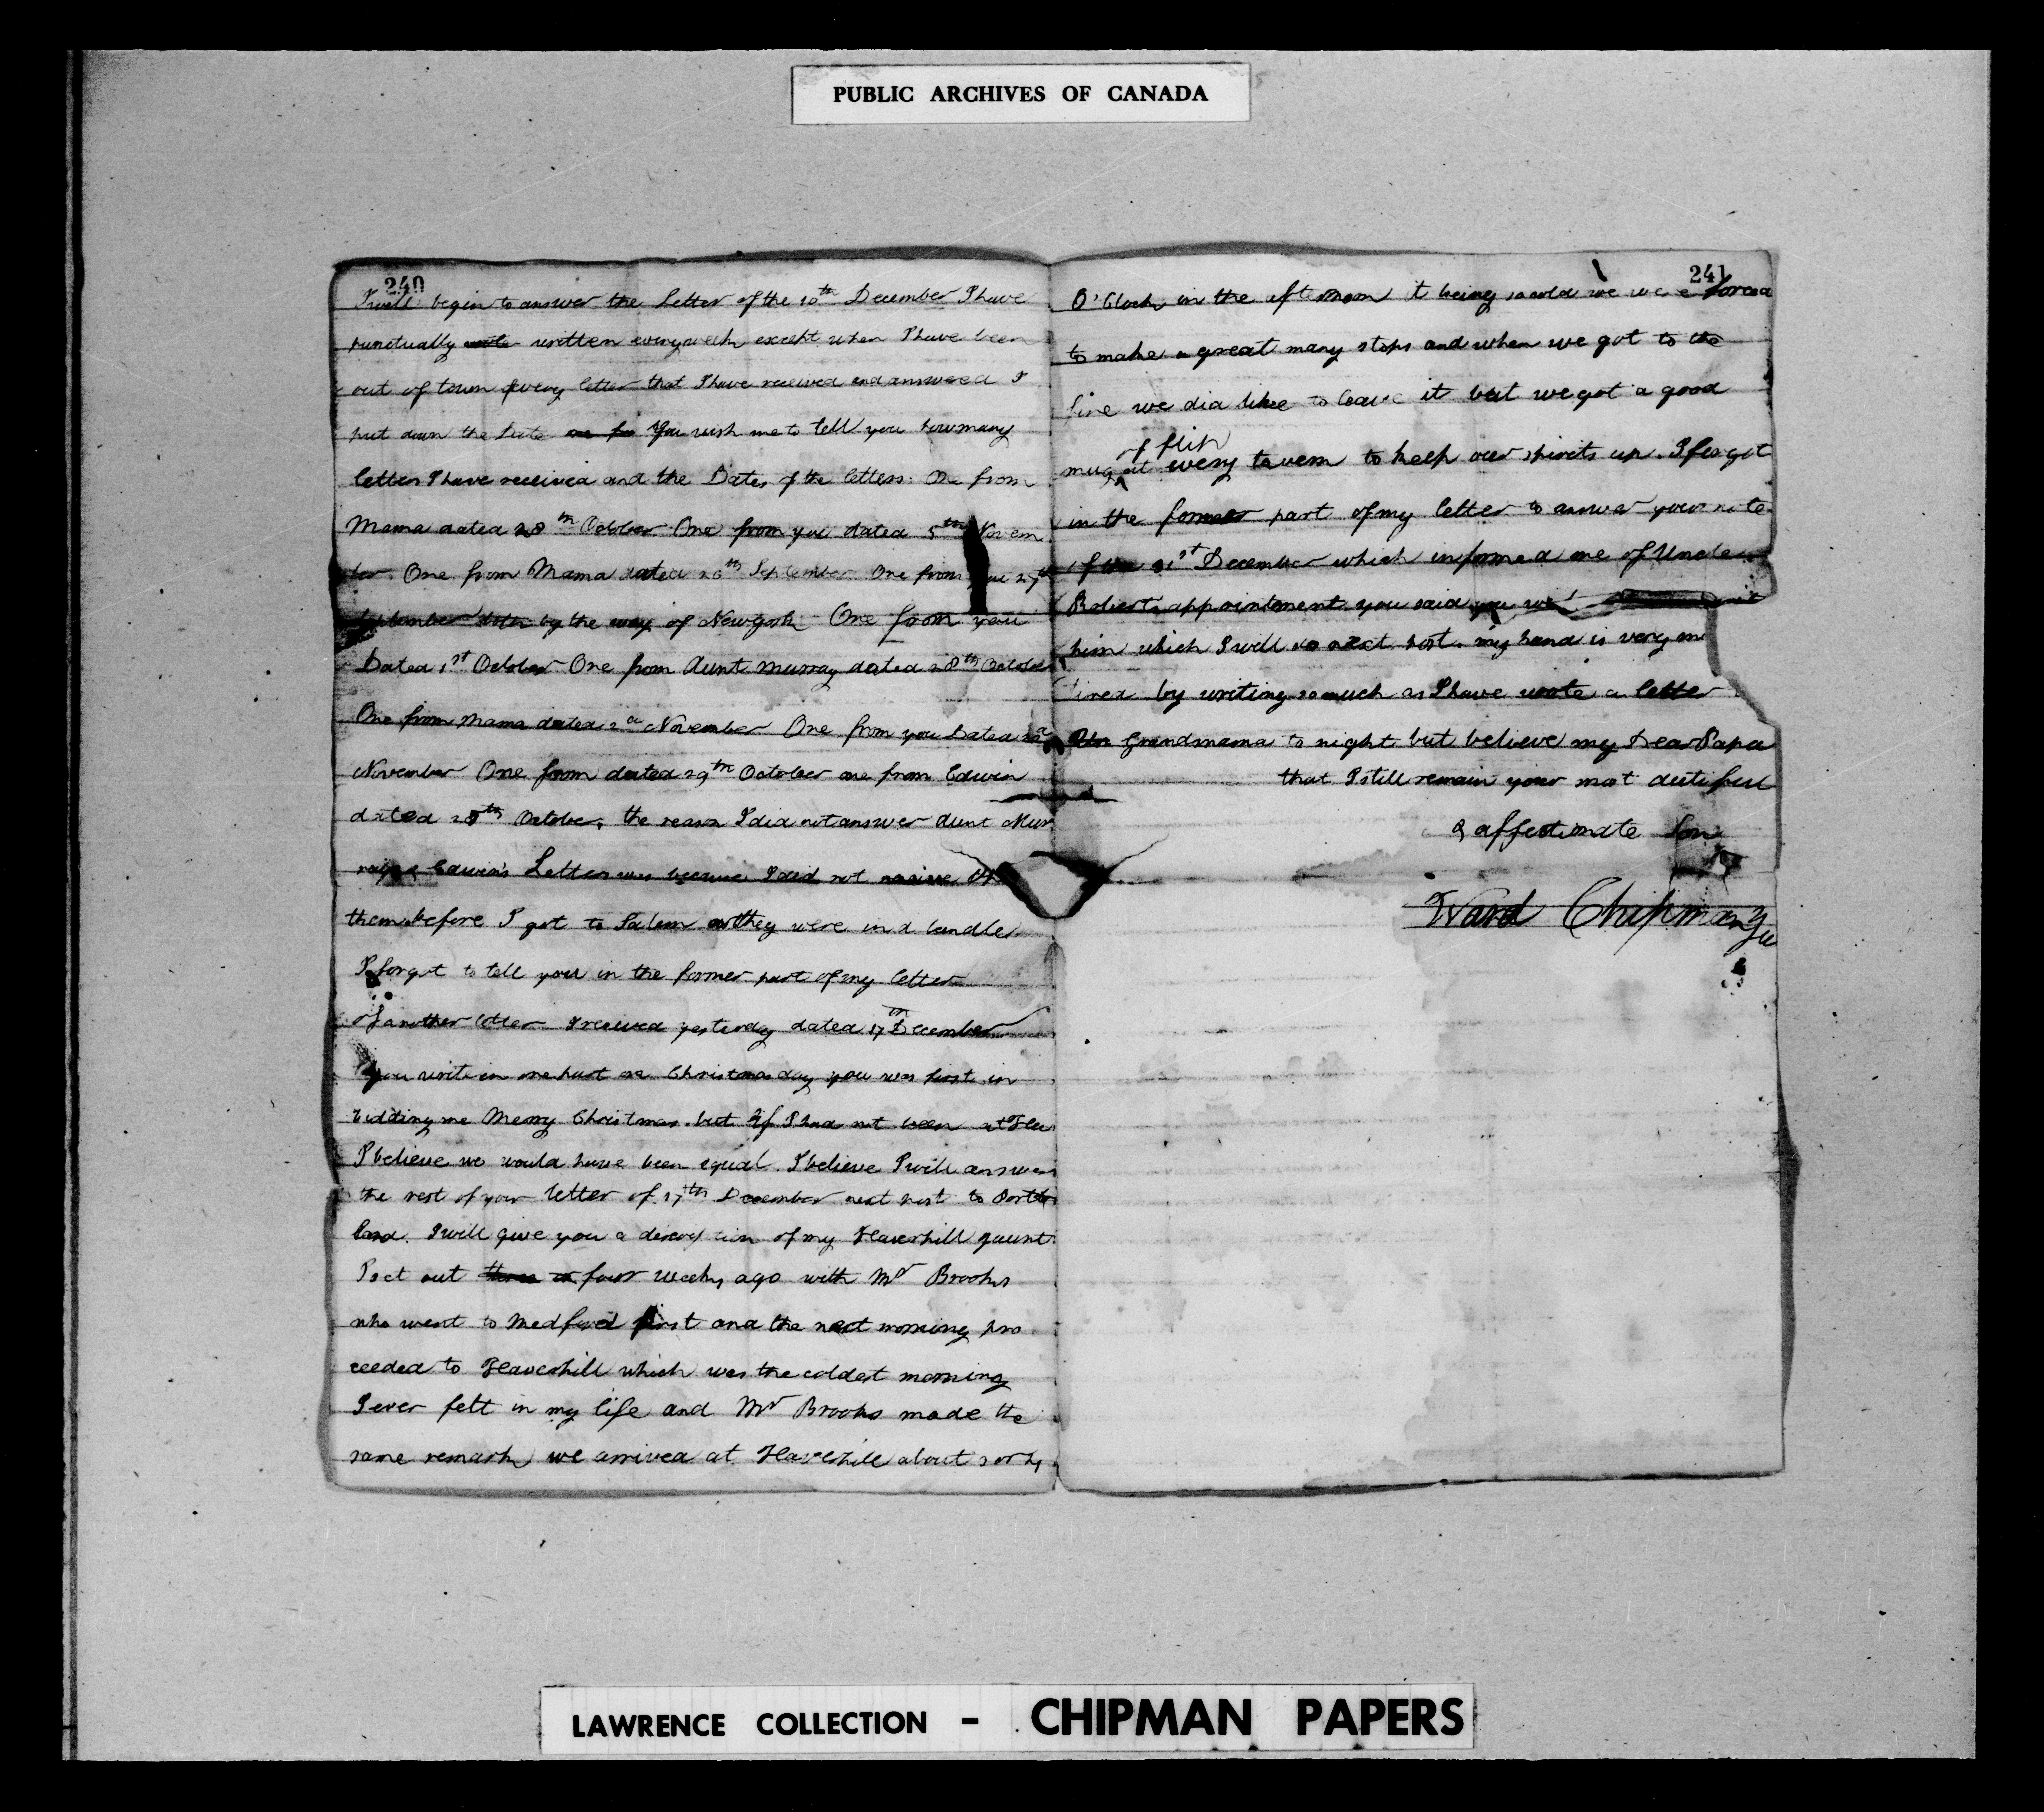 PUBLIC ARCHIVES OF CANADA
240
I will begin to answer the Letter of the 10th December I have
punctually wrote written every week except when I have been
out of town & every letter that I have received and answered I
put down the Date you wish me to tell you how many
letters I have received and the Dates of the letters. One from
Mama dated 28th October One from you dated 5th Novem
ber. One from Mama dated 26th September One from you 29th
September by the way of Newyork One from you
Dated 1st October One from Aunt Murray dated 28th October
One from Mama dated 2d November One from you Dated
November One from dated 29th October one from Edwin
dated 28th October, the reason I did not answer Aunt Mur
rays & Edwin's Letter was because I did not receive
them before I got to Salem as they were in a bundle
I forgot to tell you in the former part of my letter
of another letter I received yesterday dated 17th December
you write in one part on Christmas day you was first in
bidding me Merry Christmas. but if I had not been at Hav
I believe we would have been equal. I believe I will answer
the rest of your letter of 17th December next post to Portl
land. I will give you a description of my Haverhill gaunt
I set out three or four weeks ago with Mr Brooks
who went to Medford first and the next morning pro
ceeded to Haverhill which was the coldest morning
I ever felt in my life and Mr Brooks made the
same remark we arrived at Haverhill about 3 or 4
241
O'Clock in the afternoon it being so cold we were forced
to make a great many stops and when we got to the
fire we did like to leave it but we got a good
of flip
mug at every tavern to keep our spirits up. I forgot
in the former part of my letter to answer your note
of the 21st December which informed me of Uncle
Roberts appointment you said you
him which I will do next post. my hand is very
tired by writing so much as I have wrote a letter
Grandmama to night but believe my Dear Papa
that I still remain your most dutiful
& affectionate Son
Ward Chipman Ju
LAWRENCE COLLECTION - CHIPMAN PAPERS